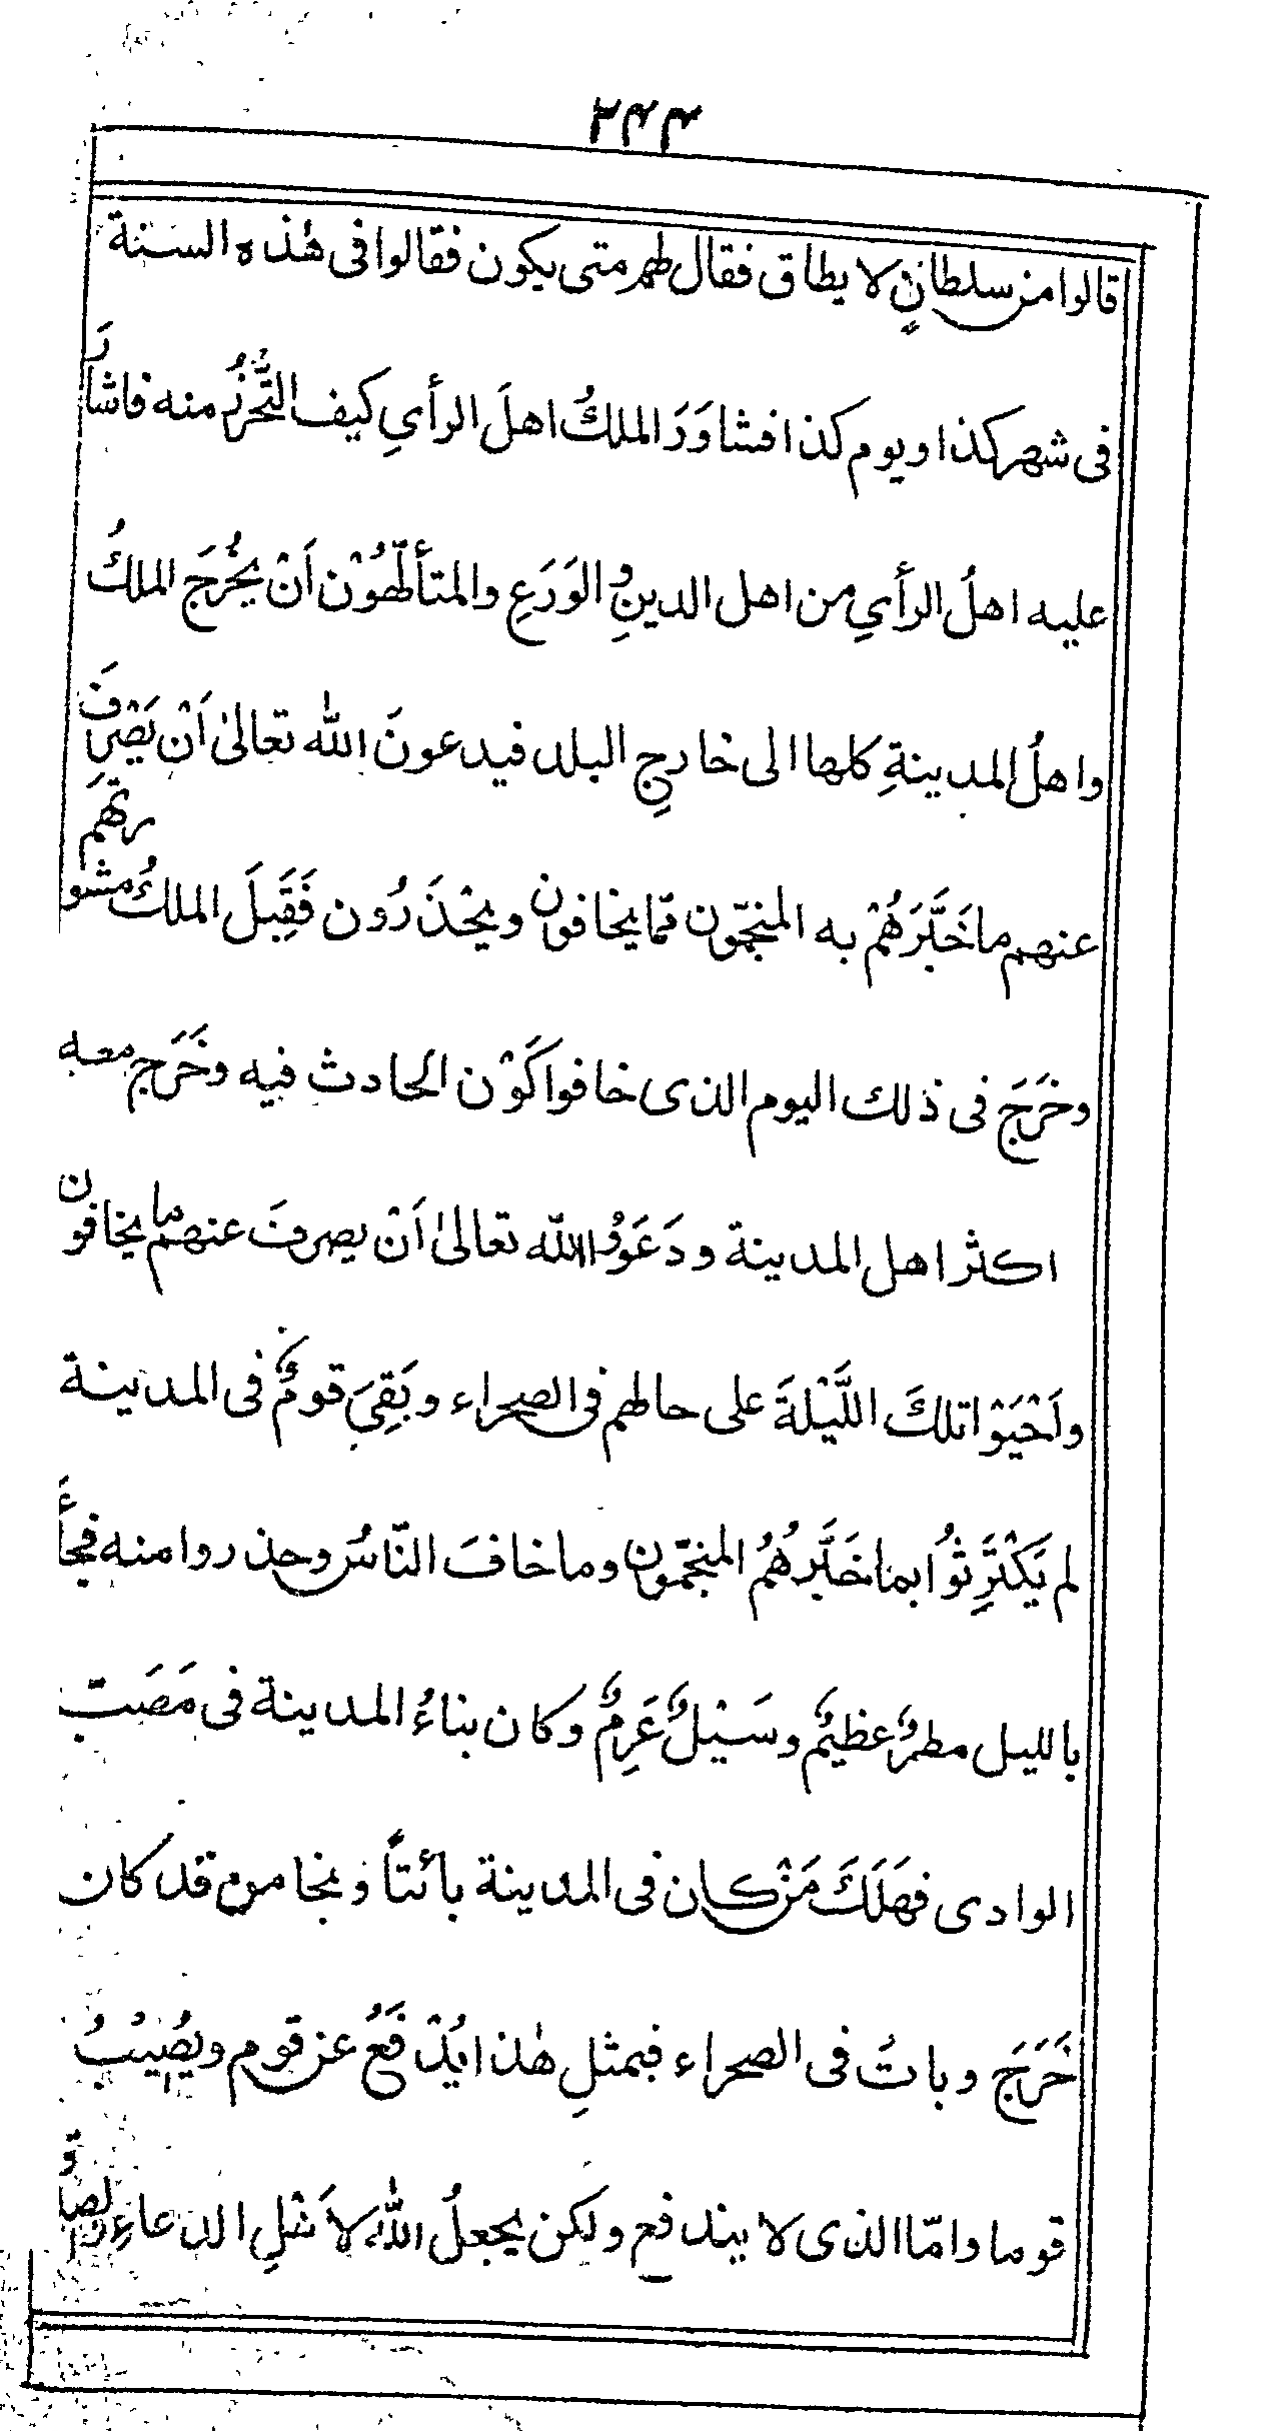 ۲۴۴
قالوا من سلطانٍ لا يطاق فقال لهم متى يكون فقالوا فى هٰذه السنة
فى شهر كذا ويوم كذا فشاوَرَ الملكُ اهلَ الرأىِ كيف التَّحَرُّزُ منه فاشارَ
عليه اهلُ الرأىِ من اهل الدينِ والوَرَعِ والمتألّهُوْن اَنْ يخْرُجَ الملكُ
واهلُ المدينةِ كلها الى خارجِ البلد فيدعونَ الله تعالىٰ اَنْ يَصْرِفَ
عنهم ما خَبَّرَهُمْ به المنجّمون ممّا يخافون ويحْذَرُون فَقَبِلَ الملكُ مشورتَهم
وخَرَجَ فى ذلك اليوم الذى خافوا كَوْن الحادث فيه وخَرَج معه
اكثر اهل المدينة ودَعَوُا الله تعالىٰ اَنْ يصرفَ عنهم ما يخافون
واَحْيَوْا تلكَ اللَّيْلةَ على حالهم فى الصحراء وبَقِىَ قومٌ فى المدينة
لم يَكْتَرِثُوا بما خَبَّرهُمُ المنجّمون وما خافَ النّاسُ وحذروا منه فجأَءَ
بالليل مطرٌ عظيمٌ وسَيْلٌ عَرِمٌ وكان بناءُ المدينة فى مَصَبّ
الوادى فهَلَكَ مَنْ كان فى المدينة بائتاً ونجا من قد كان
خَرَجَ وباتَ فى الصحراء فبمثلِ هٰذا يُدْفَعُ عن قوم ويُصيبُ
قوما وامّا الذى لا يندفع ولكن يجعلُ اللهُ لاَهْلِ الدعاءِ والصلوة